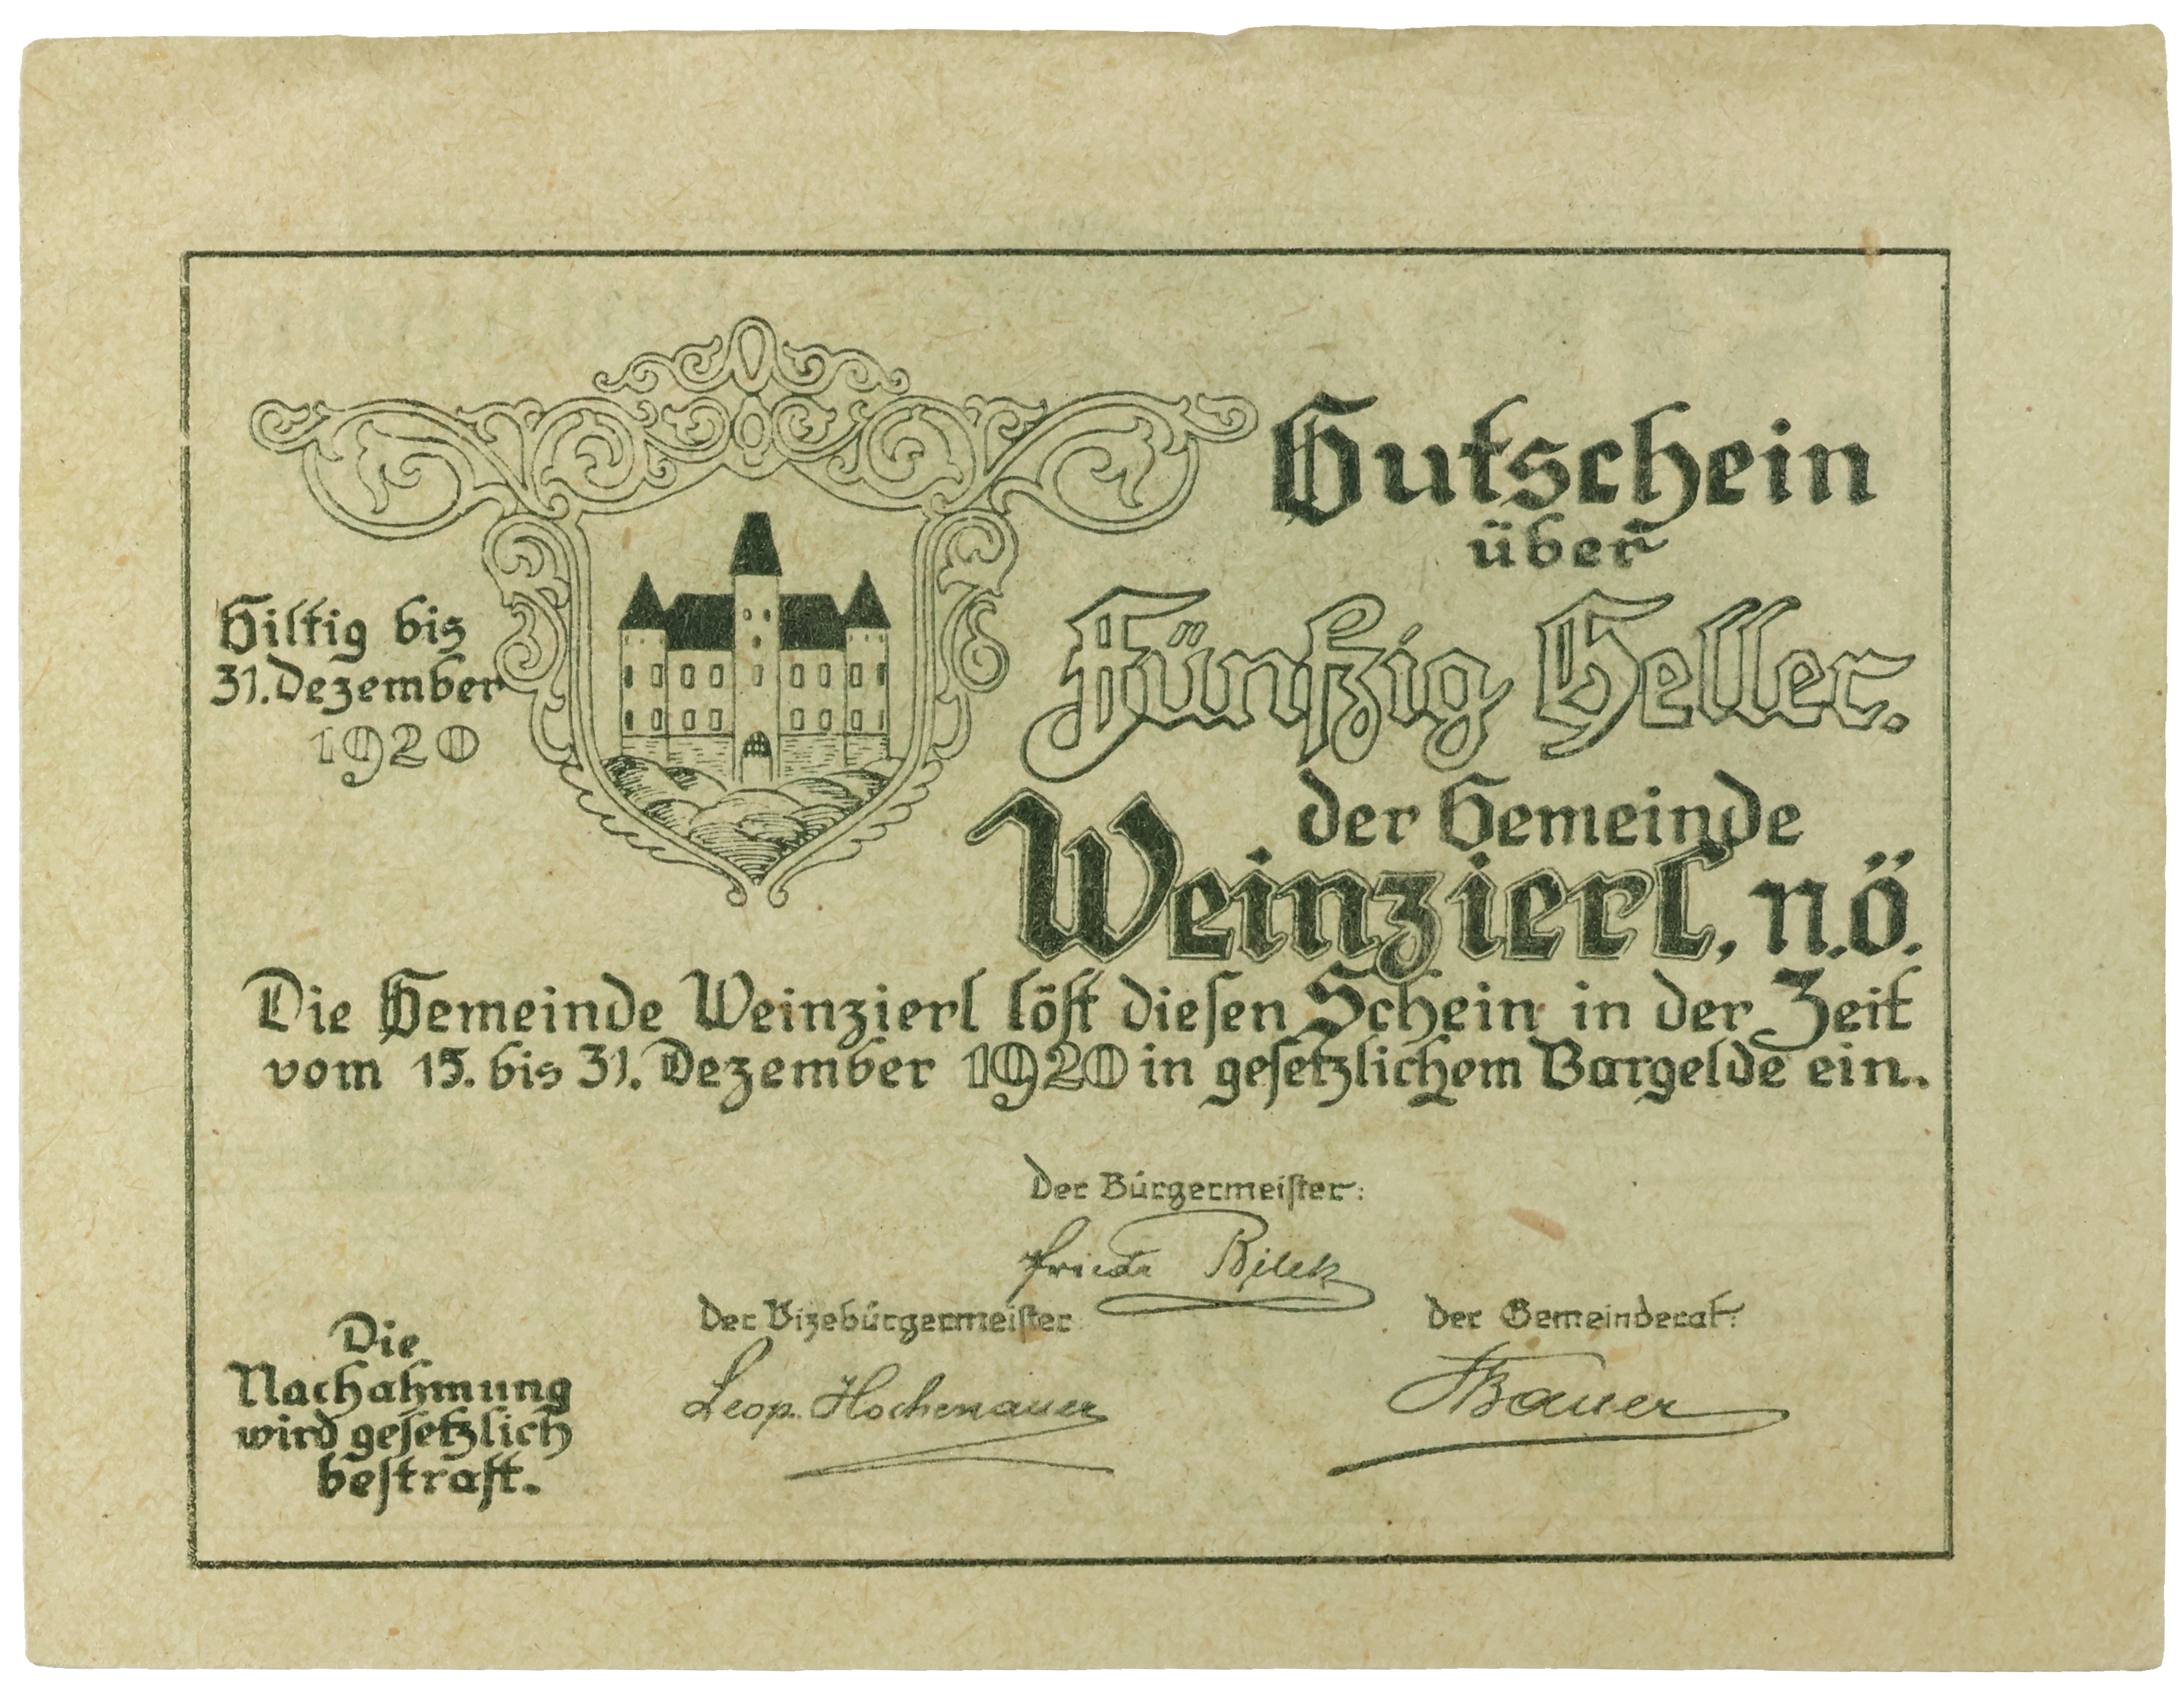 Gutschein
über
Fünfzig Heller.
der Gemeinde
Weinzierl, N.Ö.
Giltig bis
31. Dezember
1920
Die Gemeinde Weinzierl löſt dieſen Schein in der Zeit
vom 15. bis 31. Dezember 1920 in geſetzlichem Bargelde ein.
Der Bürgermeiſter:
Bilek
Der Vizebürgermeiſter:
Leop. Hochenauer
Der Gemeinderat:
Bauer
Die
Nachahmung
wird geſetzlich
beſtraft.